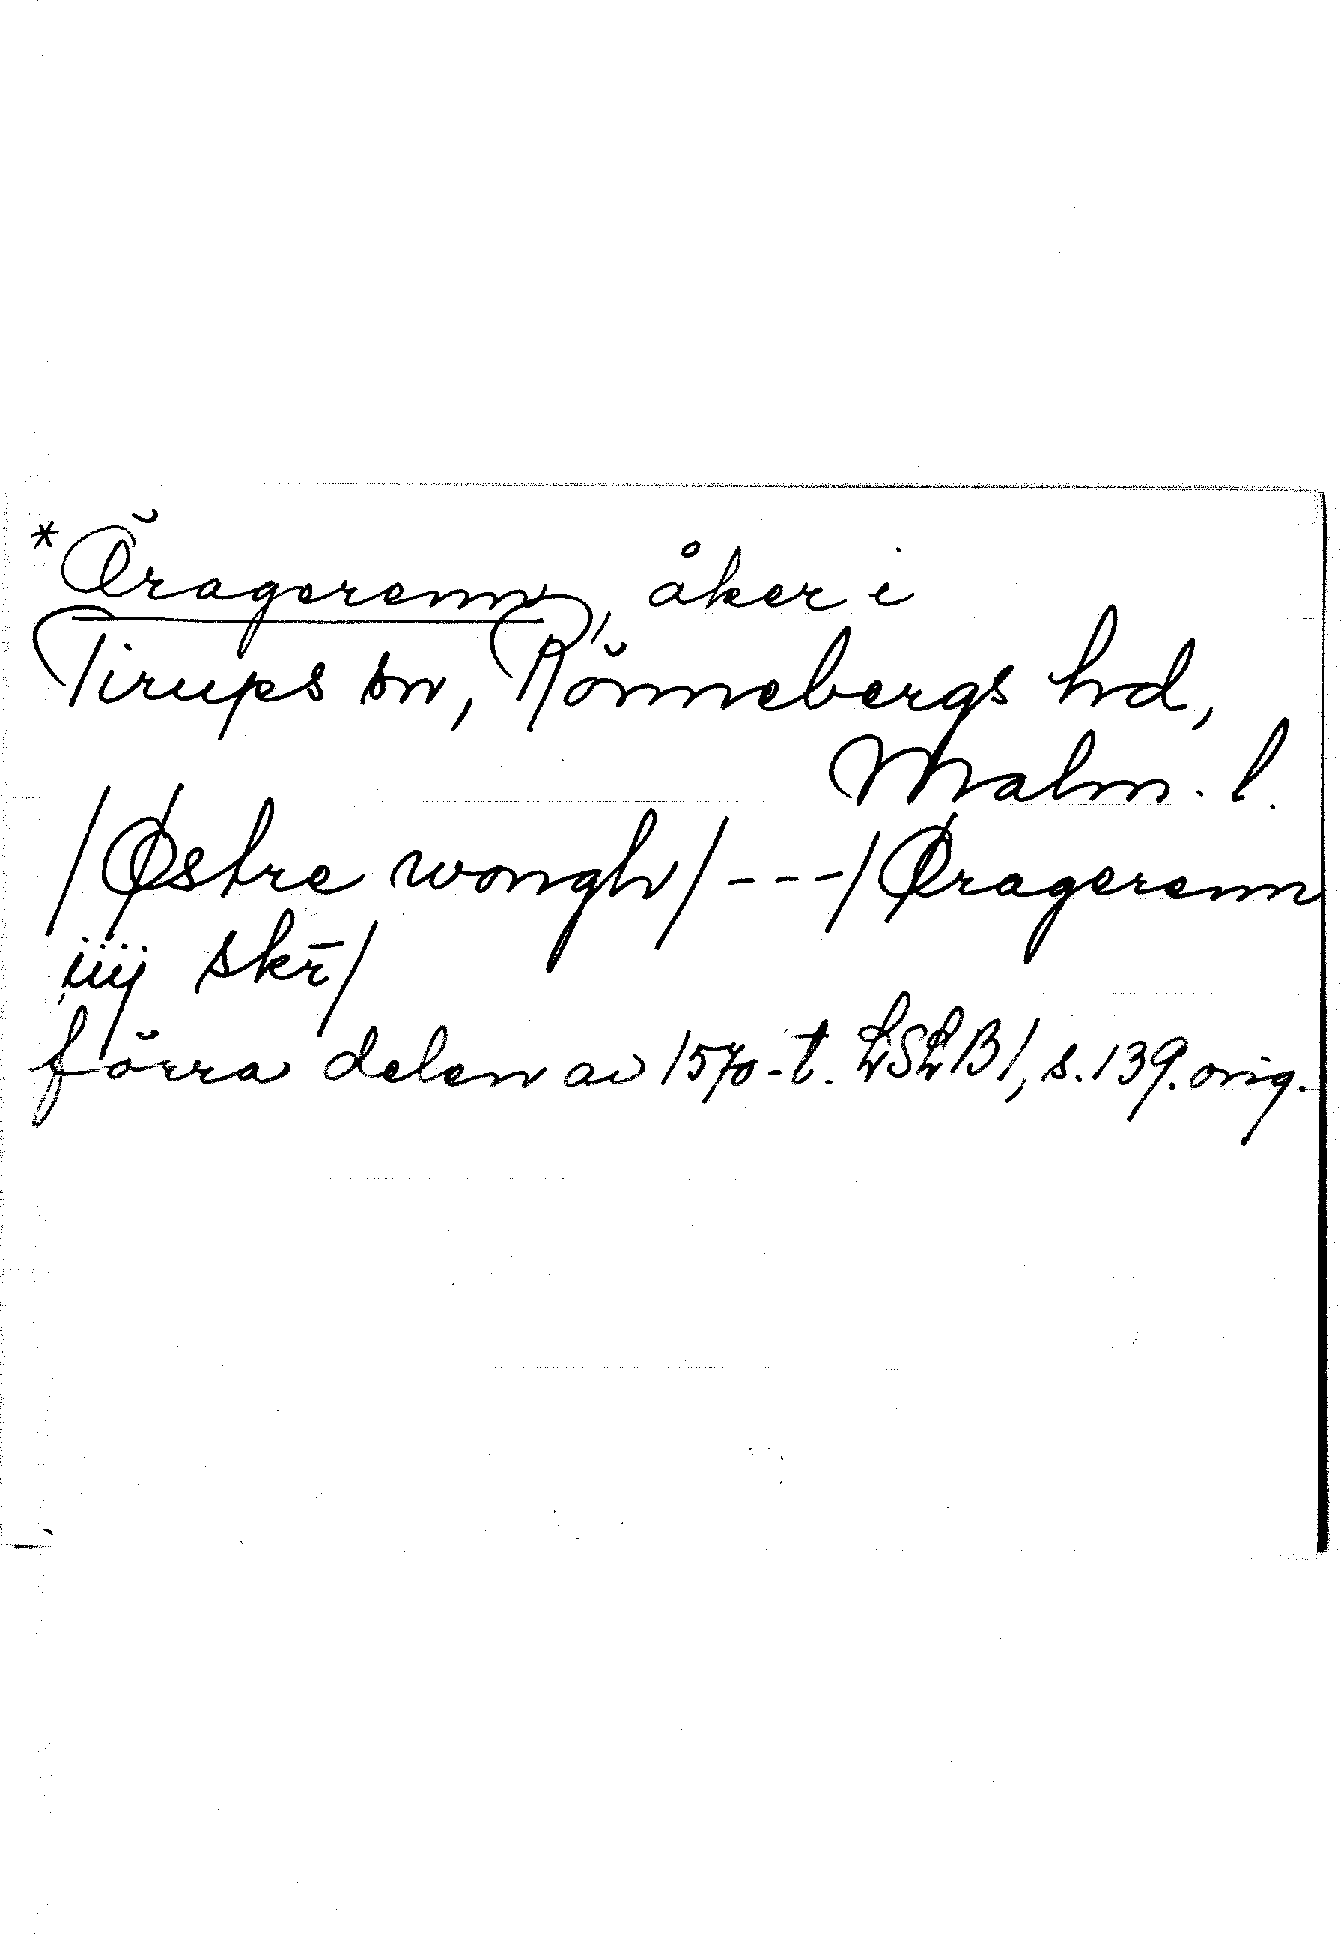 *Öragerenn, åker i
Tirups sn, Rönnebergs hd,
Malm. l.
/Østre wongh/ - - - / Øragerenn
iiij skr̄/
förra delen av 1570-t. LSLB1, s. 139. orig.